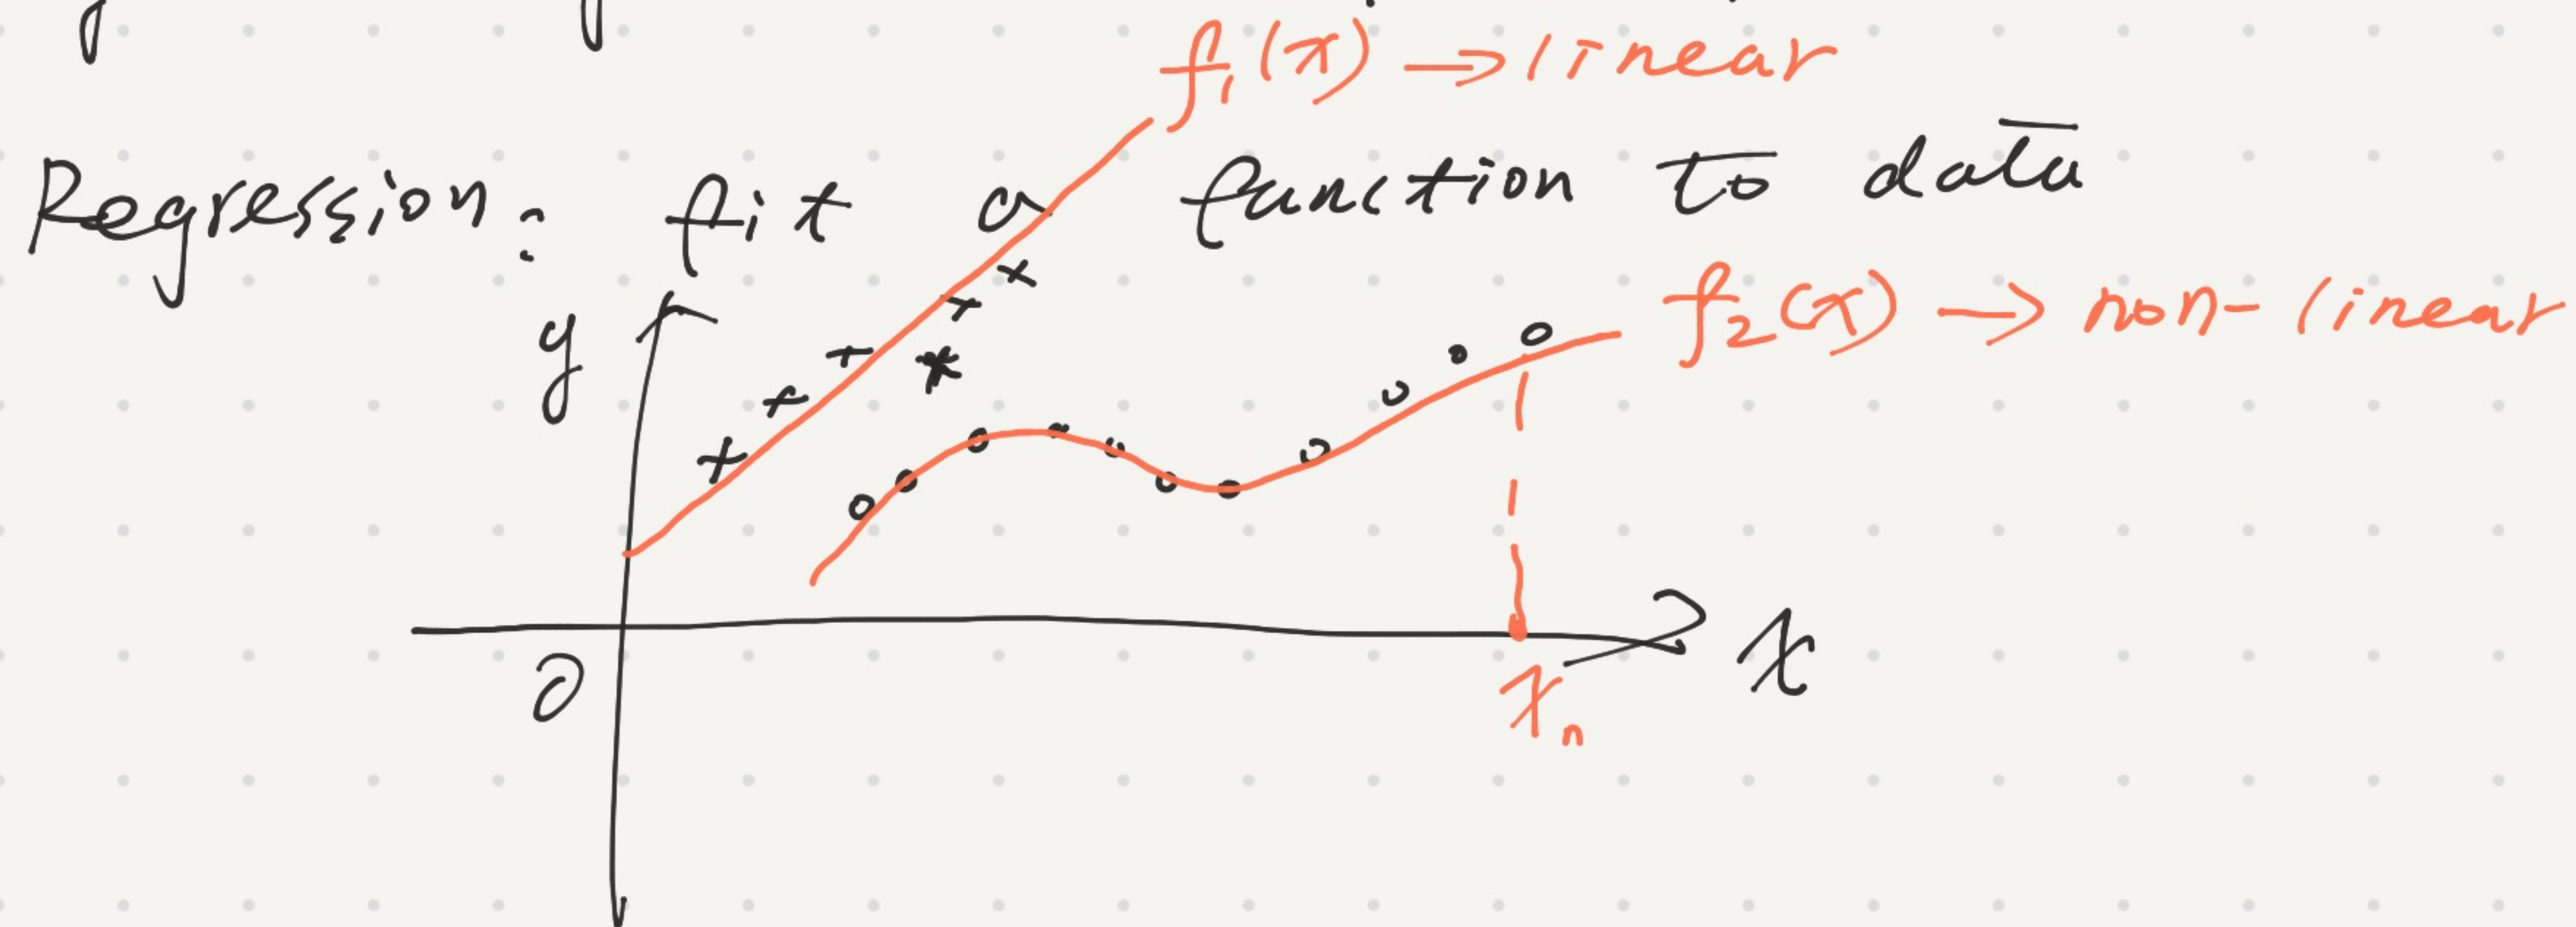 f₁(x) → linear
Regression: fit a function to data
f₂(x) → non-linear
y
0
x
xₙ